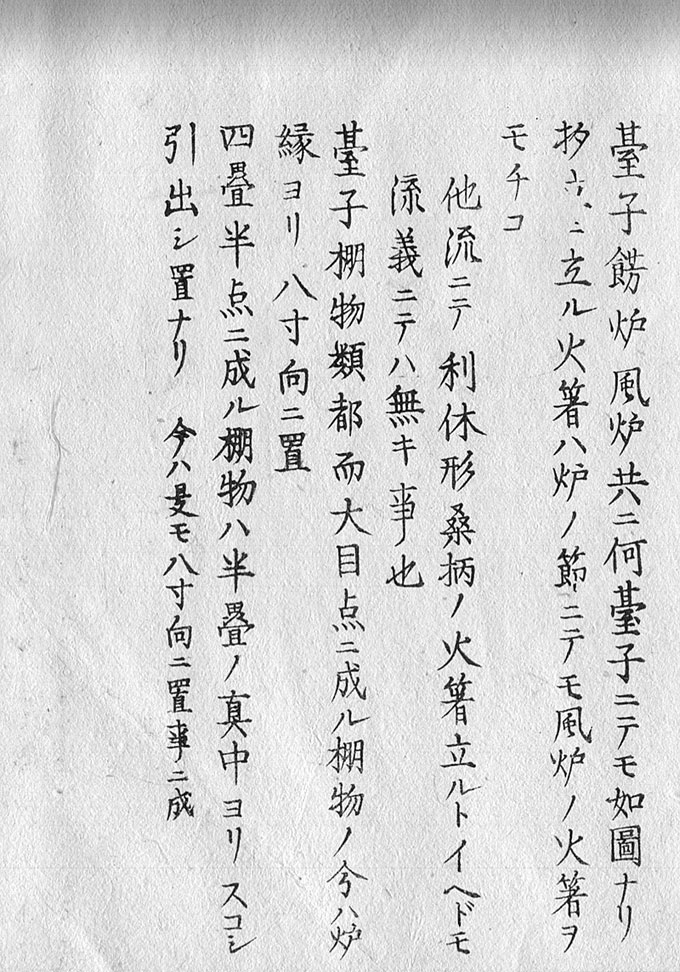 臺子餝炉風炉共ニ何臺子ニテモ如圖ナリ
立ル火箸ハ炉ノ節ニテモ風炉ノ火箸ヲ
モチコ
他流ニテ利休形桑柄ノ火箸立ルトイヘドモ
流義ニテハ無キ事也
臺子棚物類都而大目点ニ成ル棚物ノ分ハ炉
縁ヨリ八寸向ニ置
四畳半点ニ成ル棚物ハ半畳ノ真中ヨリスコシ
引出シ置ナリ 今ハ是モ八寸向ニ置事ニ成